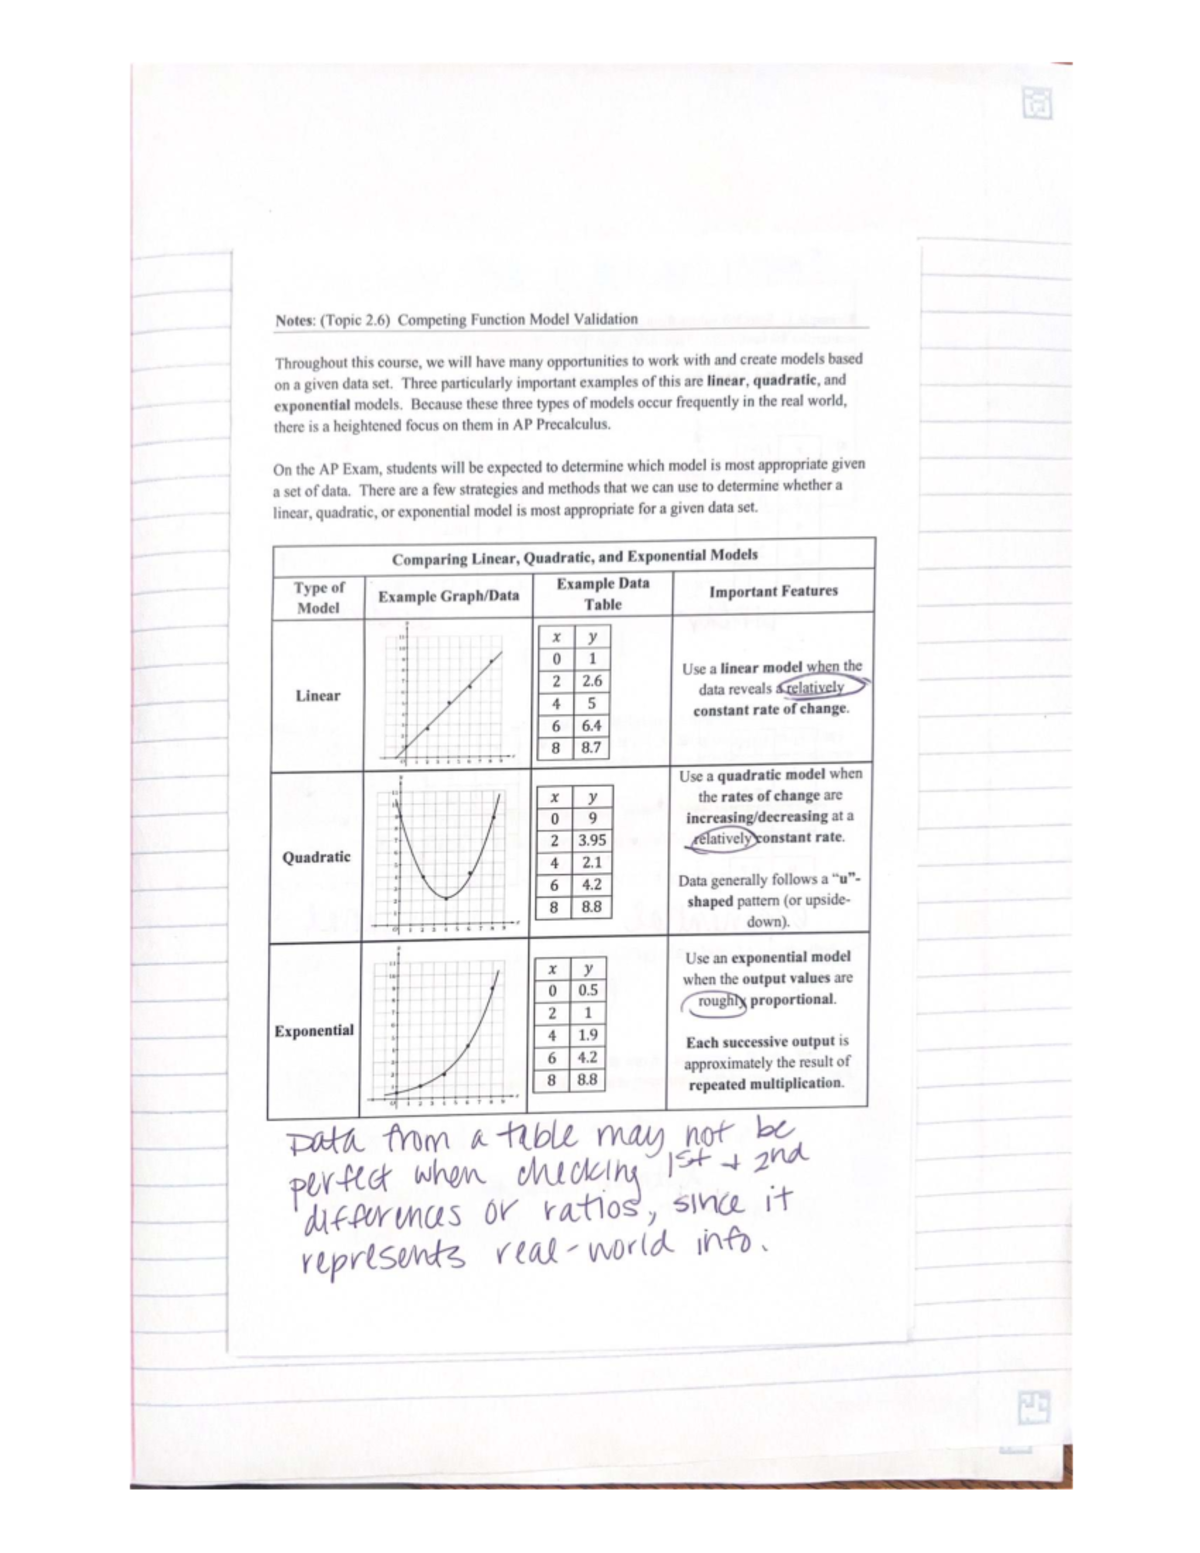 Notes: (Topic 2.6) Competing Function Model Validation
Throughout this course, we will have many opportunities to work with and create models based
on a given data set. Three particularly important examples of this are linear, quadratic, and
exponential models. Because these three types of models occur frequently in the real world,
there is a heightened focus on them in AP Precalculus.
On the AP Exam, students will be expected to determine which model is most appropriate given
a set of data. There are a few strategies and methods that we can use to determine whether a
linear, quadratic, or exponential model is most appropriate for a given data set.
Comparing Linear, Quadratic, and Exponential Models
Type of
Model
Example Graph/Data
Example Data
Table
Important Features
Linear
x y
0 1
2 2.6
4 5
6 6.4
8 8.7
Use a linear model when the
data reveals a relatively
constant rate of change.
Quadratic
x y
0 9
2 3.95
4 2.1
6 4.2
8 8.8
Use a quadratic model when
the rates of change are
increasing/decreasing at a
relatively constant rate.
Data generally follows a “u”-
shaped pattern (or upside-
down).
Exponential
x y
0 0.5
2 1
4 1.9
6 4.2
8 8.8
Use an exponential model
when the output values are
roughly proportional.
Each successive output is
approximately the result of
repeated multiplication.
Data from a table may not be
perfect when checking 1st + 2nd
differences or ratios, since it
represents real-world info.